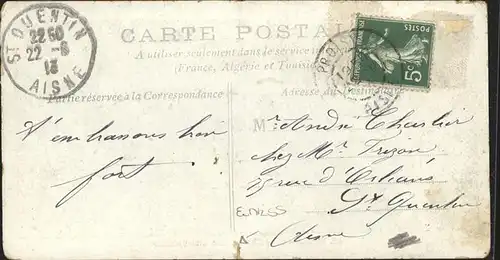 ST QUENTIN
22 50
22-8
13
AISNE
CARTE POSTALE
A utiliser seulement dans le service
(France, Algérie et Tunisie
Partie réservée à la Correspondance
Adresse du Destinataire
POSTES
5c
T'embrassons bien
fort.
Mr André Charlier
chez Mr
rue d'Orléans
St Quentin
Aisne